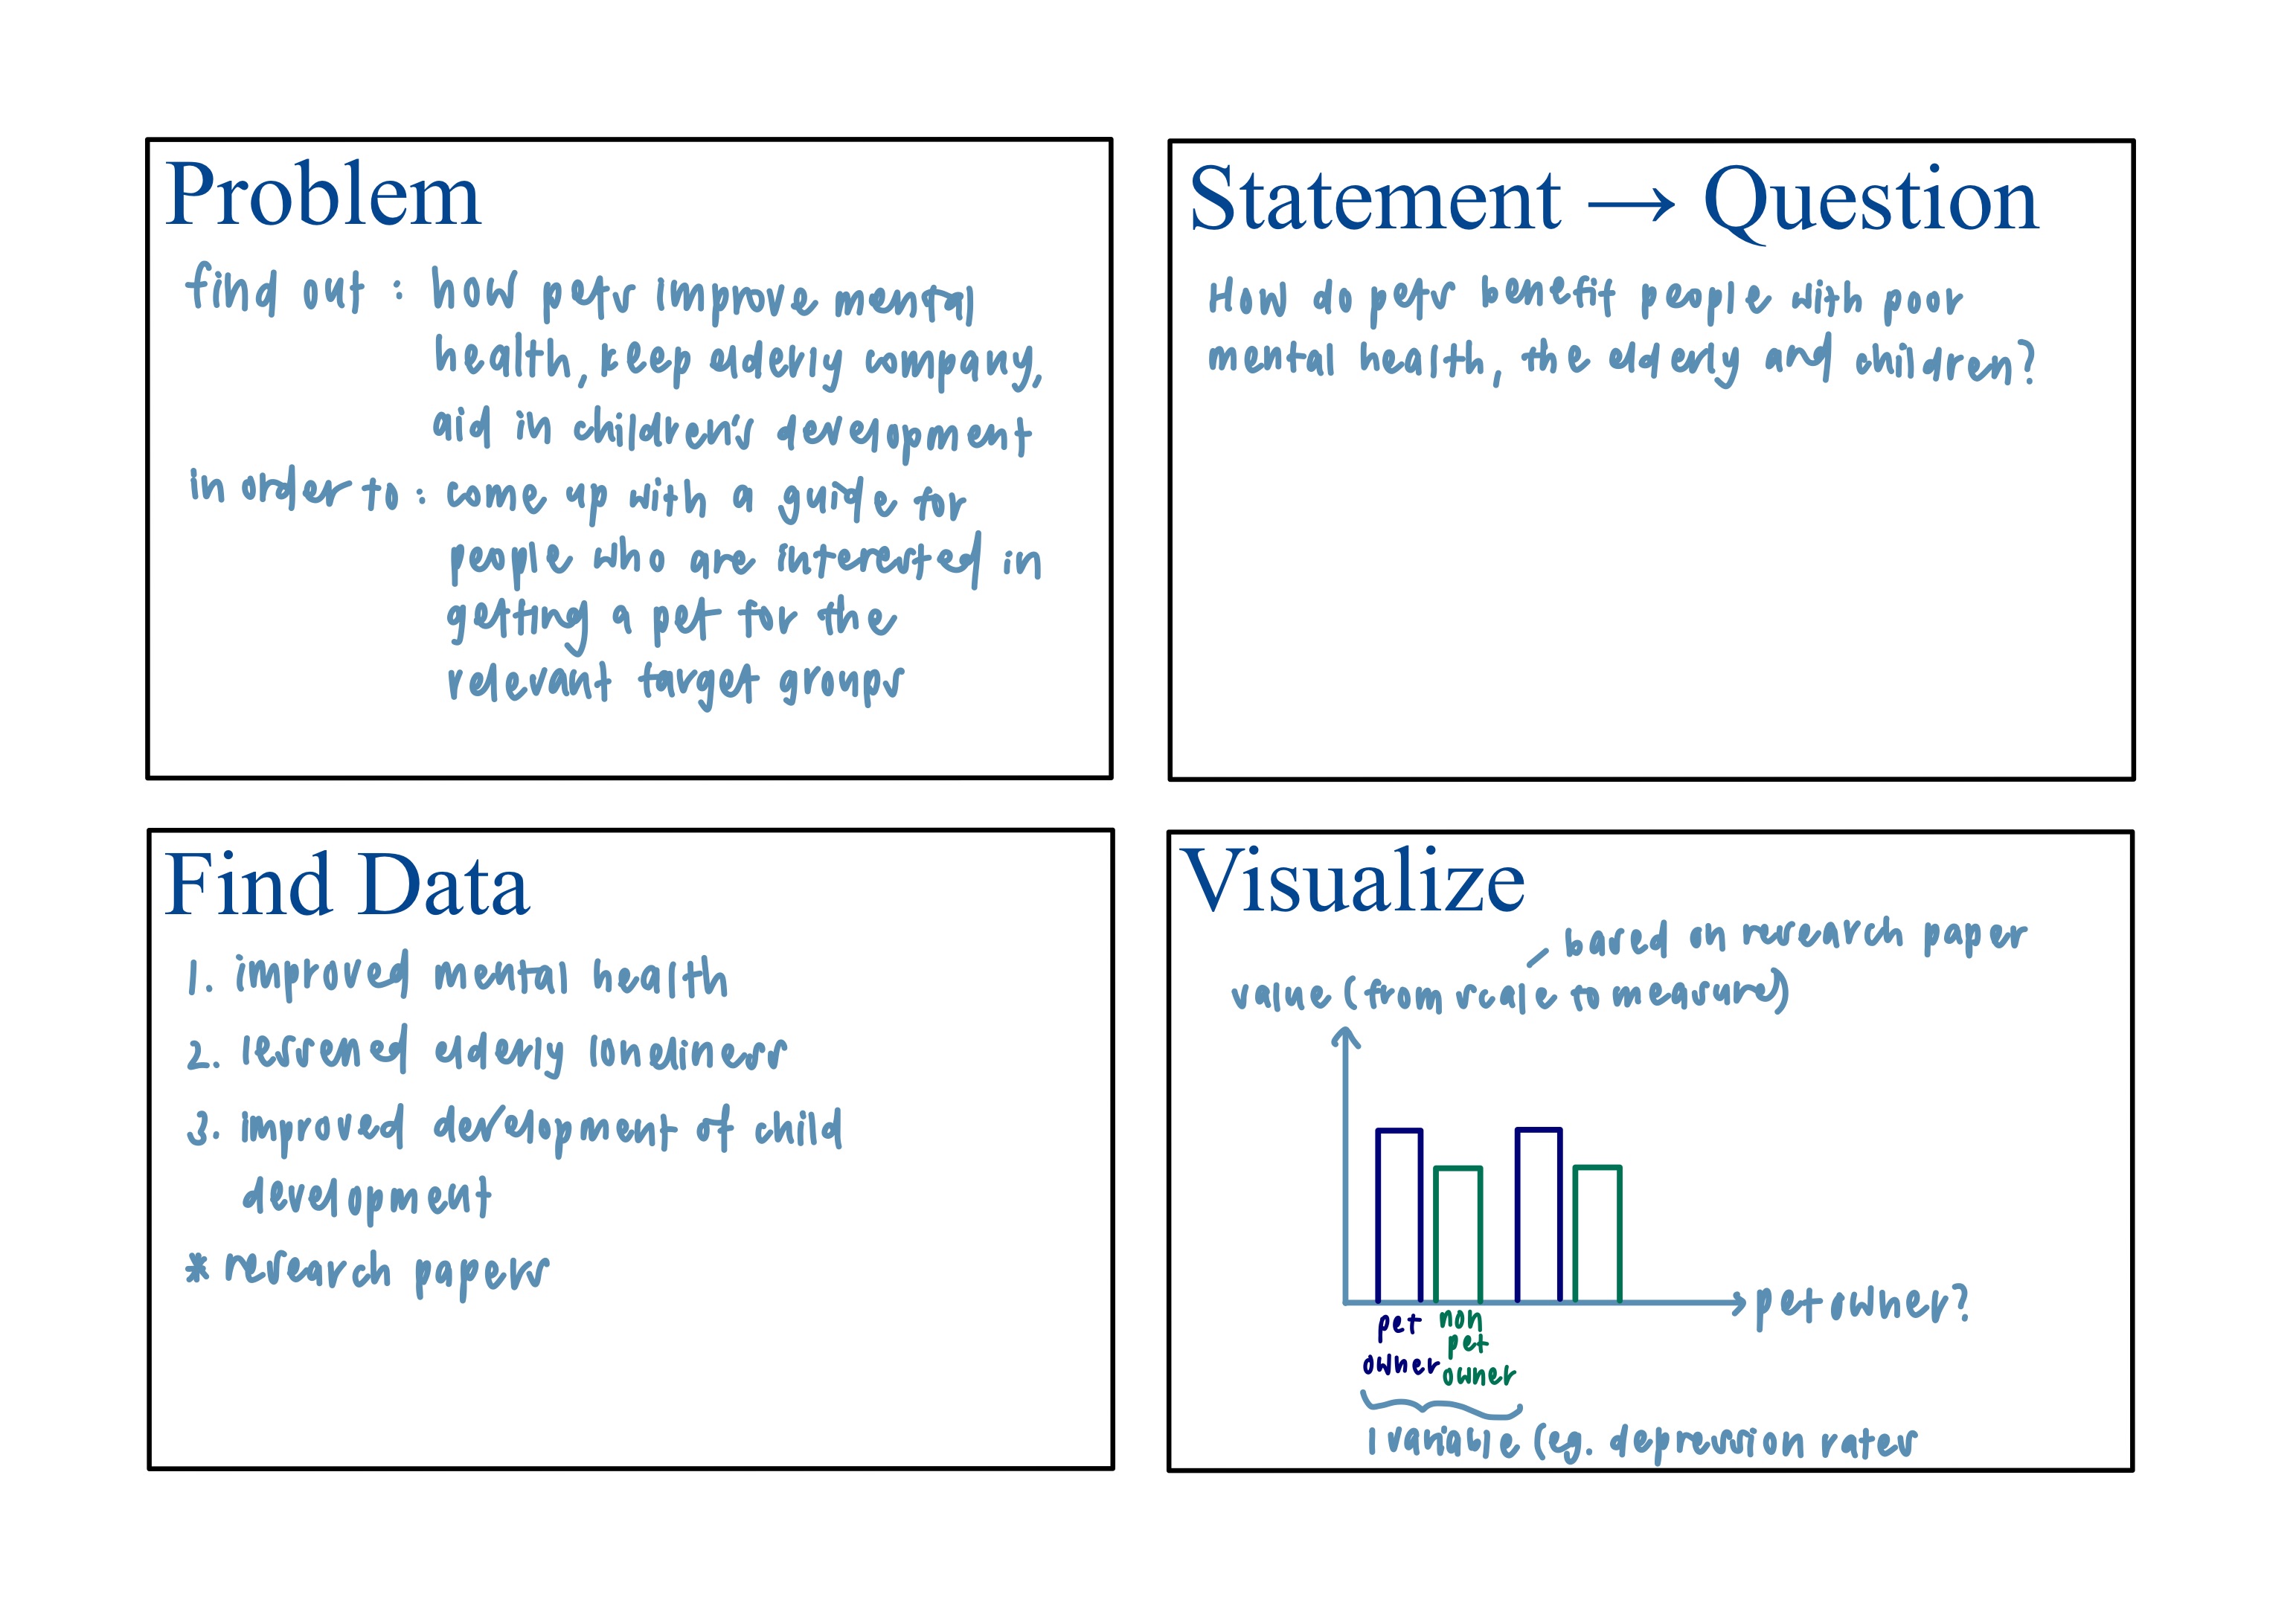 Problem
find out : how pets improve mental
health, keep elderly company,
aid in children's development
in order to : come up with a guide for
people who are interested in
getting a pet for the
relevant target groups
Statement → Question
How do pets benefit people with poor
mental health, the elderly and children?
Find Data
1. improved mental health
2. lessened elderly loneliness
3. improved development of child
development
* research papers
Visualize
based on research paper
value (from scale to measure)
pet owner?
pet
owner
non
pet
owner
1 variable (eg. depression rates